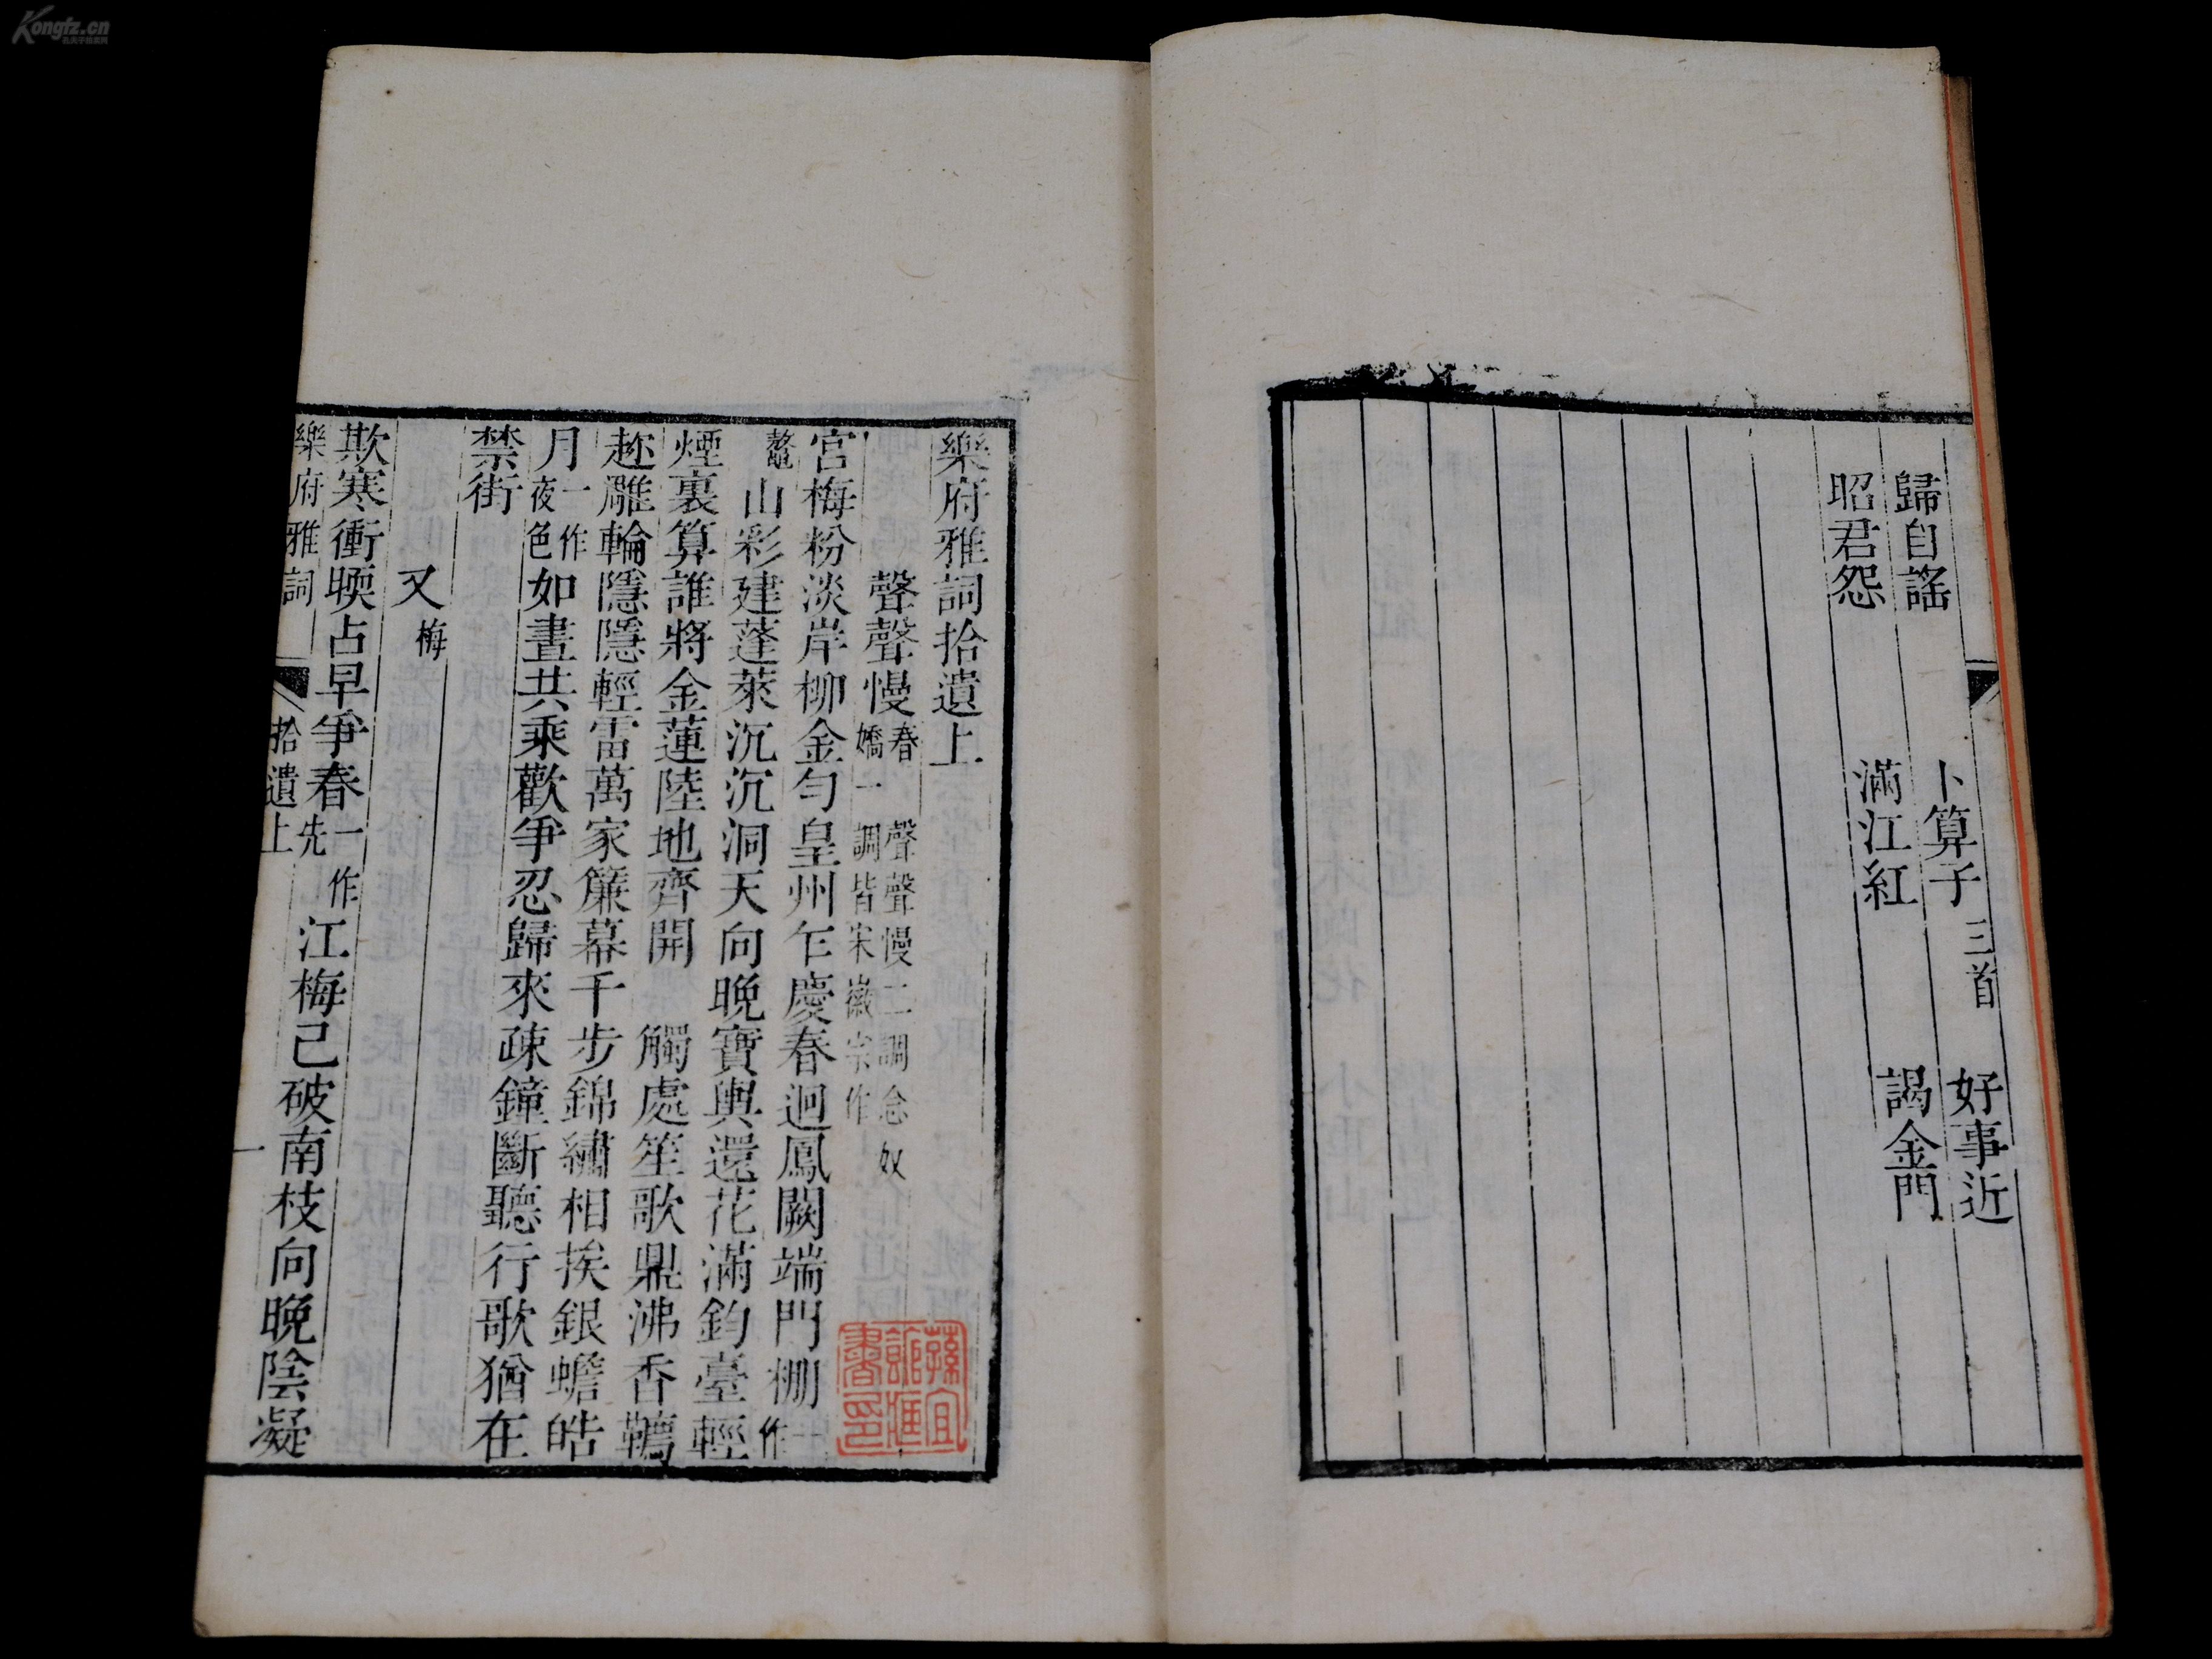 Kongfz.cn
孔夫子旧书网
歸自謠　卜算子三首　好事近
昭君怨　滿江紅　謁金門
樂府雅詞拾遺上
聲聲慢春　聲聲慢二調念奴
嬌一調皆宋徽宗作
宮梅粉淡岸柳金勻皇州乍慶春迴鳳闕端門棚一作
鼇山彩建蓬萊沉沉洞天向晚寶輿還花滿鈞臺輕
煙裏算誰將金蓮陸地齊開　觸處笙歌鼎沸香韉
趂雕輪隱隱輕雷萬家簾幕千步錦繡相挨銀蟾皓
月一作夜色如晝共乘歡爭忍歸來疎鐘斷聽行歌猶在
禁街
又梅
欺寒衝暎占早爭春一作先江梅已破南枝向晚陰凝
樂府雅詞　拾遺上　一
蓀宜
書印